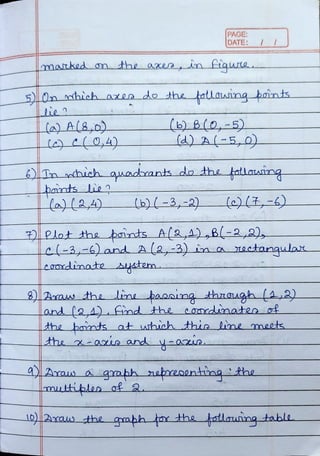 PAGE:
DATE: / /
marked on the axes, in figure.
5) On which axes do the following points
lie?
(a) A(8,0) (b) B(0,-5)
(c) C(0,4) (d) D(-5,0)
6) In which quadrants do the following
points lie?
(a) (2,4) (b) (-3,-2) (c) (7,-6)
7) Plot the points A(2,1), B(-2,2),
C(-3,-6) and D(2,-3) in a rectangular
coordinate system.
8) Draw the line passing through (1,2)
and (2,1). find the coordinates of
the points at which this line meets
the x-axis and y-axis.
9) Draw a graph representing the
multiples of 2.
10) Draw the graph for the following table